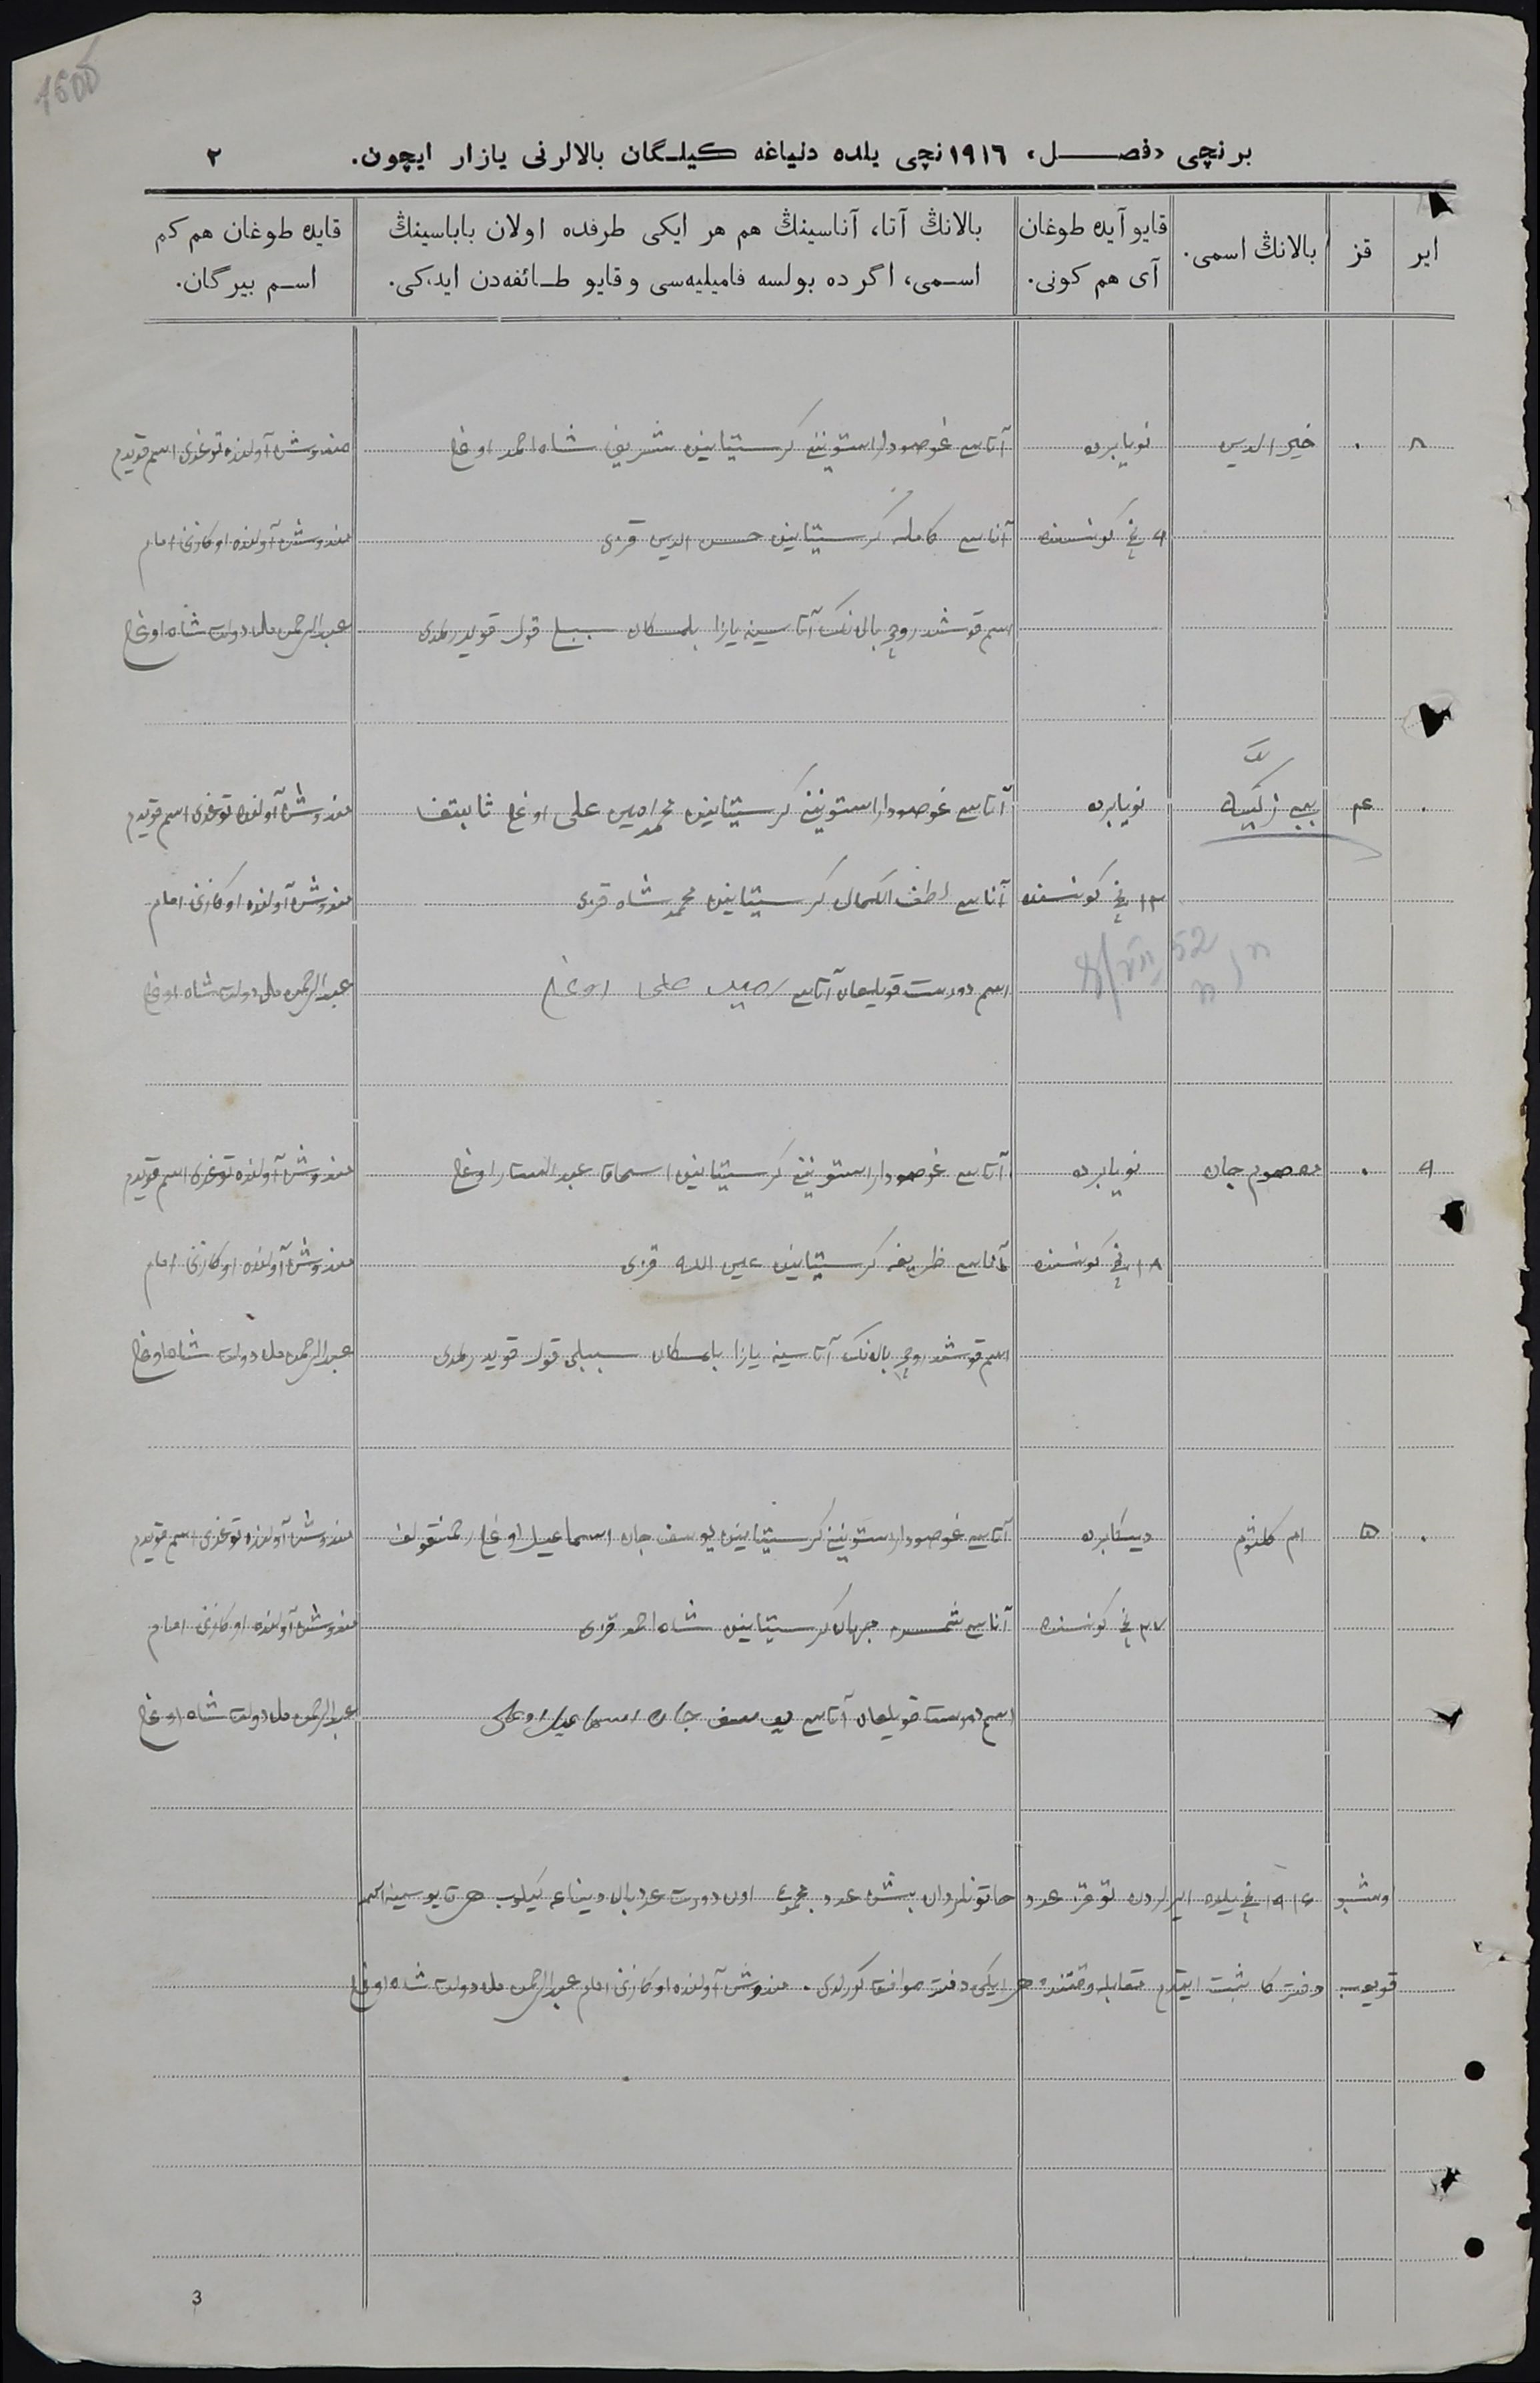 1600
برنچی «فصل» ١٩١٦نچی یلده دنیاغه کیلگان بالالرنی یازار ایچون. ٢
ایر
قز
بالانڭ اسمی.
قایو آیده طوغان
آی هم کونی.
بالانڭ آتا، آناسینڭ هم هر ایکی طرفده اولان باباسینڭ
اسمی، اگر ده بولسه فامیلیه‌سی وقایو طائفه‌دن ایدکی.
قایده طوغان هم کم
اسم بیرگان.
٨ ٠ خیر الدین نویابرده آتاسی غوصودارستوینی کرستیانین شریف شاه احمد اوغلی آولنده توغدی اسم قویدم
٩ نچی کونسنده آناسی کامله کرستیانین حسن الدین قزی آولنده اوکازنی امام
اسم قوشدروچی بالانک آتاسینه یازا بلمکان سببلی قول قویدرلمدی عبدالرحمن ملا دولت شاه اوغلی
٠ ٤ بی بی زکیه نویابرده آتاسی غوصودارستوینی کرستیانین محمد امین علی اوغلی ثابتف آولنده توغدی اسم قویدم
١٣ نچی کونسنده آناسی لطف الکمال کرستیانین محمد شاه قزی آولنده اوکازنی امام
اسم دورست قویلغان آتاسی علی اوغلی عبدالرحمن ملا دولت شاه اوغلی
VII 52
٩ ٠ معصوم جان نویابرده آتاسی غوصودارستوینی کرستیانین اسحاق عبد الستار اوغلی آولنده توغدی اسم قویدم
١٨ نچی کونسنده آناسی ظریفه کرستیانین عین الله قزی آولنده اوکازنی امام
اسم قوشدروچی بالانک آتاسینه یازا بلمکان سببلی قول قویدرلمدی عبدالرحمن ملا دولت شاه اوغلی
٠ ٥ ام کلثوم دیکابرده آتاسی غوصودارستوینی کرستیانین یوسف جان اسماعیل اوغلی آولنده توغدی اسم قویدم
٢٧ نچی کونسنده آناسی شمس جهان کرستیانین شاه احمد قزی آولنده اوکازنی امام
اسم درست قویلغان آتاسی یوسف جان اسماعیل اوغلی عبدالرحمن ملا دولت شاه اوغلی
اوشبو ١٩١٦ نچی یلده ایرلردن توقز عدد خاتونلردان بیش عدد اون دورت عدد بالا دنیاغه کیلوب
قویوب دفتر کا ثبت ایتدم مقابله وقتنده هر ایکی دفتر موافق کورلدی. آولنده اوکازنی امام عبدالرحمن ملا دولت شاه اوغلی
3